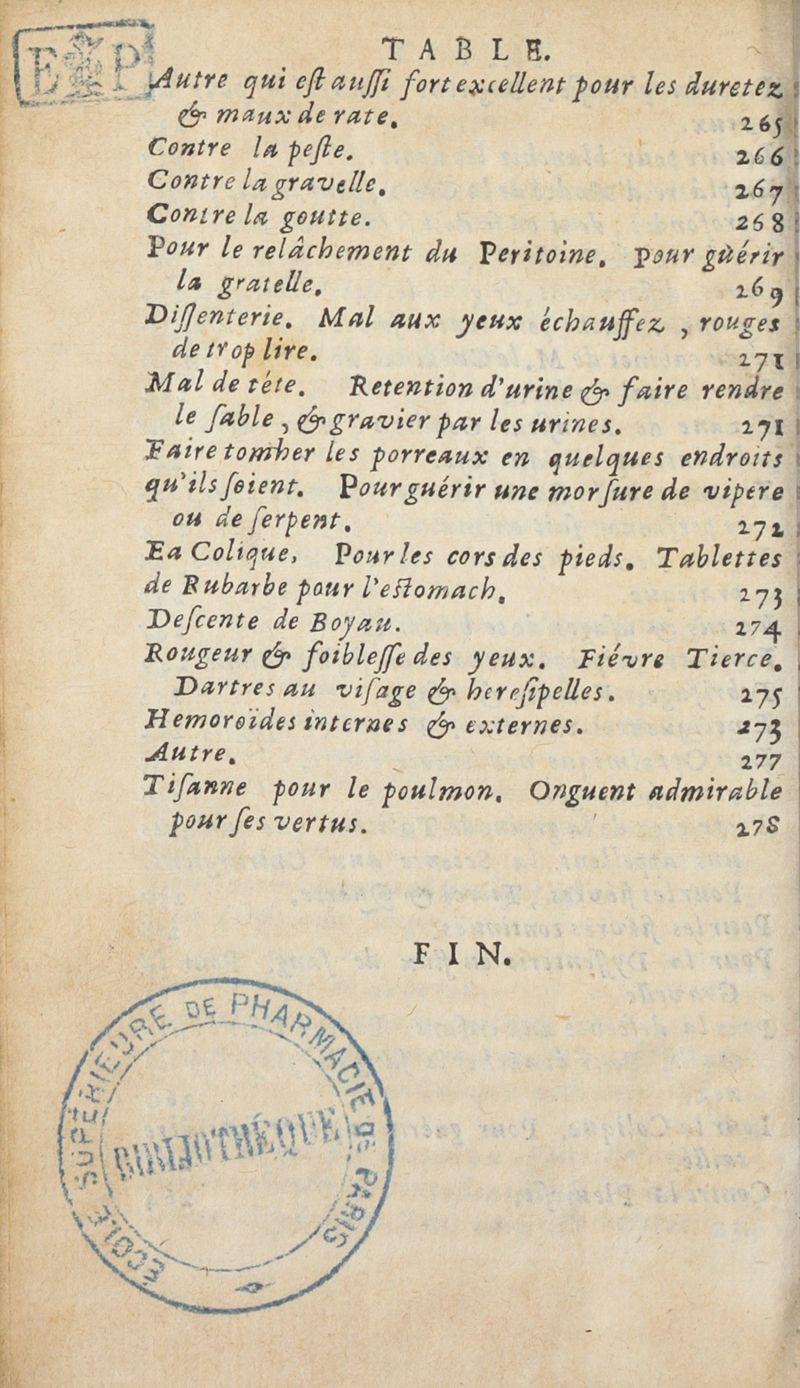 TABLE.
E P
Autre qui eſt auſſi fort excellent pour les duretez
& maux de rate. 265
Contre la peſte. 266
Contre la gravelle. 267
Contre la goutte. 268
Pour le relâchement du Peritoine. pour guèrir
la gratelle. 269
Diſſenterie. Mal aux yeux échauffez , rouges
de trop lire. 271
Mal de téte. Retention d'urine & faire rendre
le ſable , & gravier par les urines. 271
Faire tomber les porreaux en quelques endroits
qu'ils ſoient. Pour guérir une morſure de vipere
ou de ſerpent. 272
Ea Colique, Pour les cors des pieds. Tablettes
de Rubarbe pour l'eſtomach. 273
Deſcente de Boyau. 274
Rougeur & foibleſſe des yeux. Fiévre Tierce.
Dartres au viſage & hereſipelles. 275
Hemoroïdes internes & externes. 273
Autre. 277
Tiſanne pour le poulmon. Onguent admirable
pour ſes vertus. 278
FIN.
ÉCOLE SUPÉRIEURE DE PHARMACIE DE PARIS
BIBLIOTHÉQUE